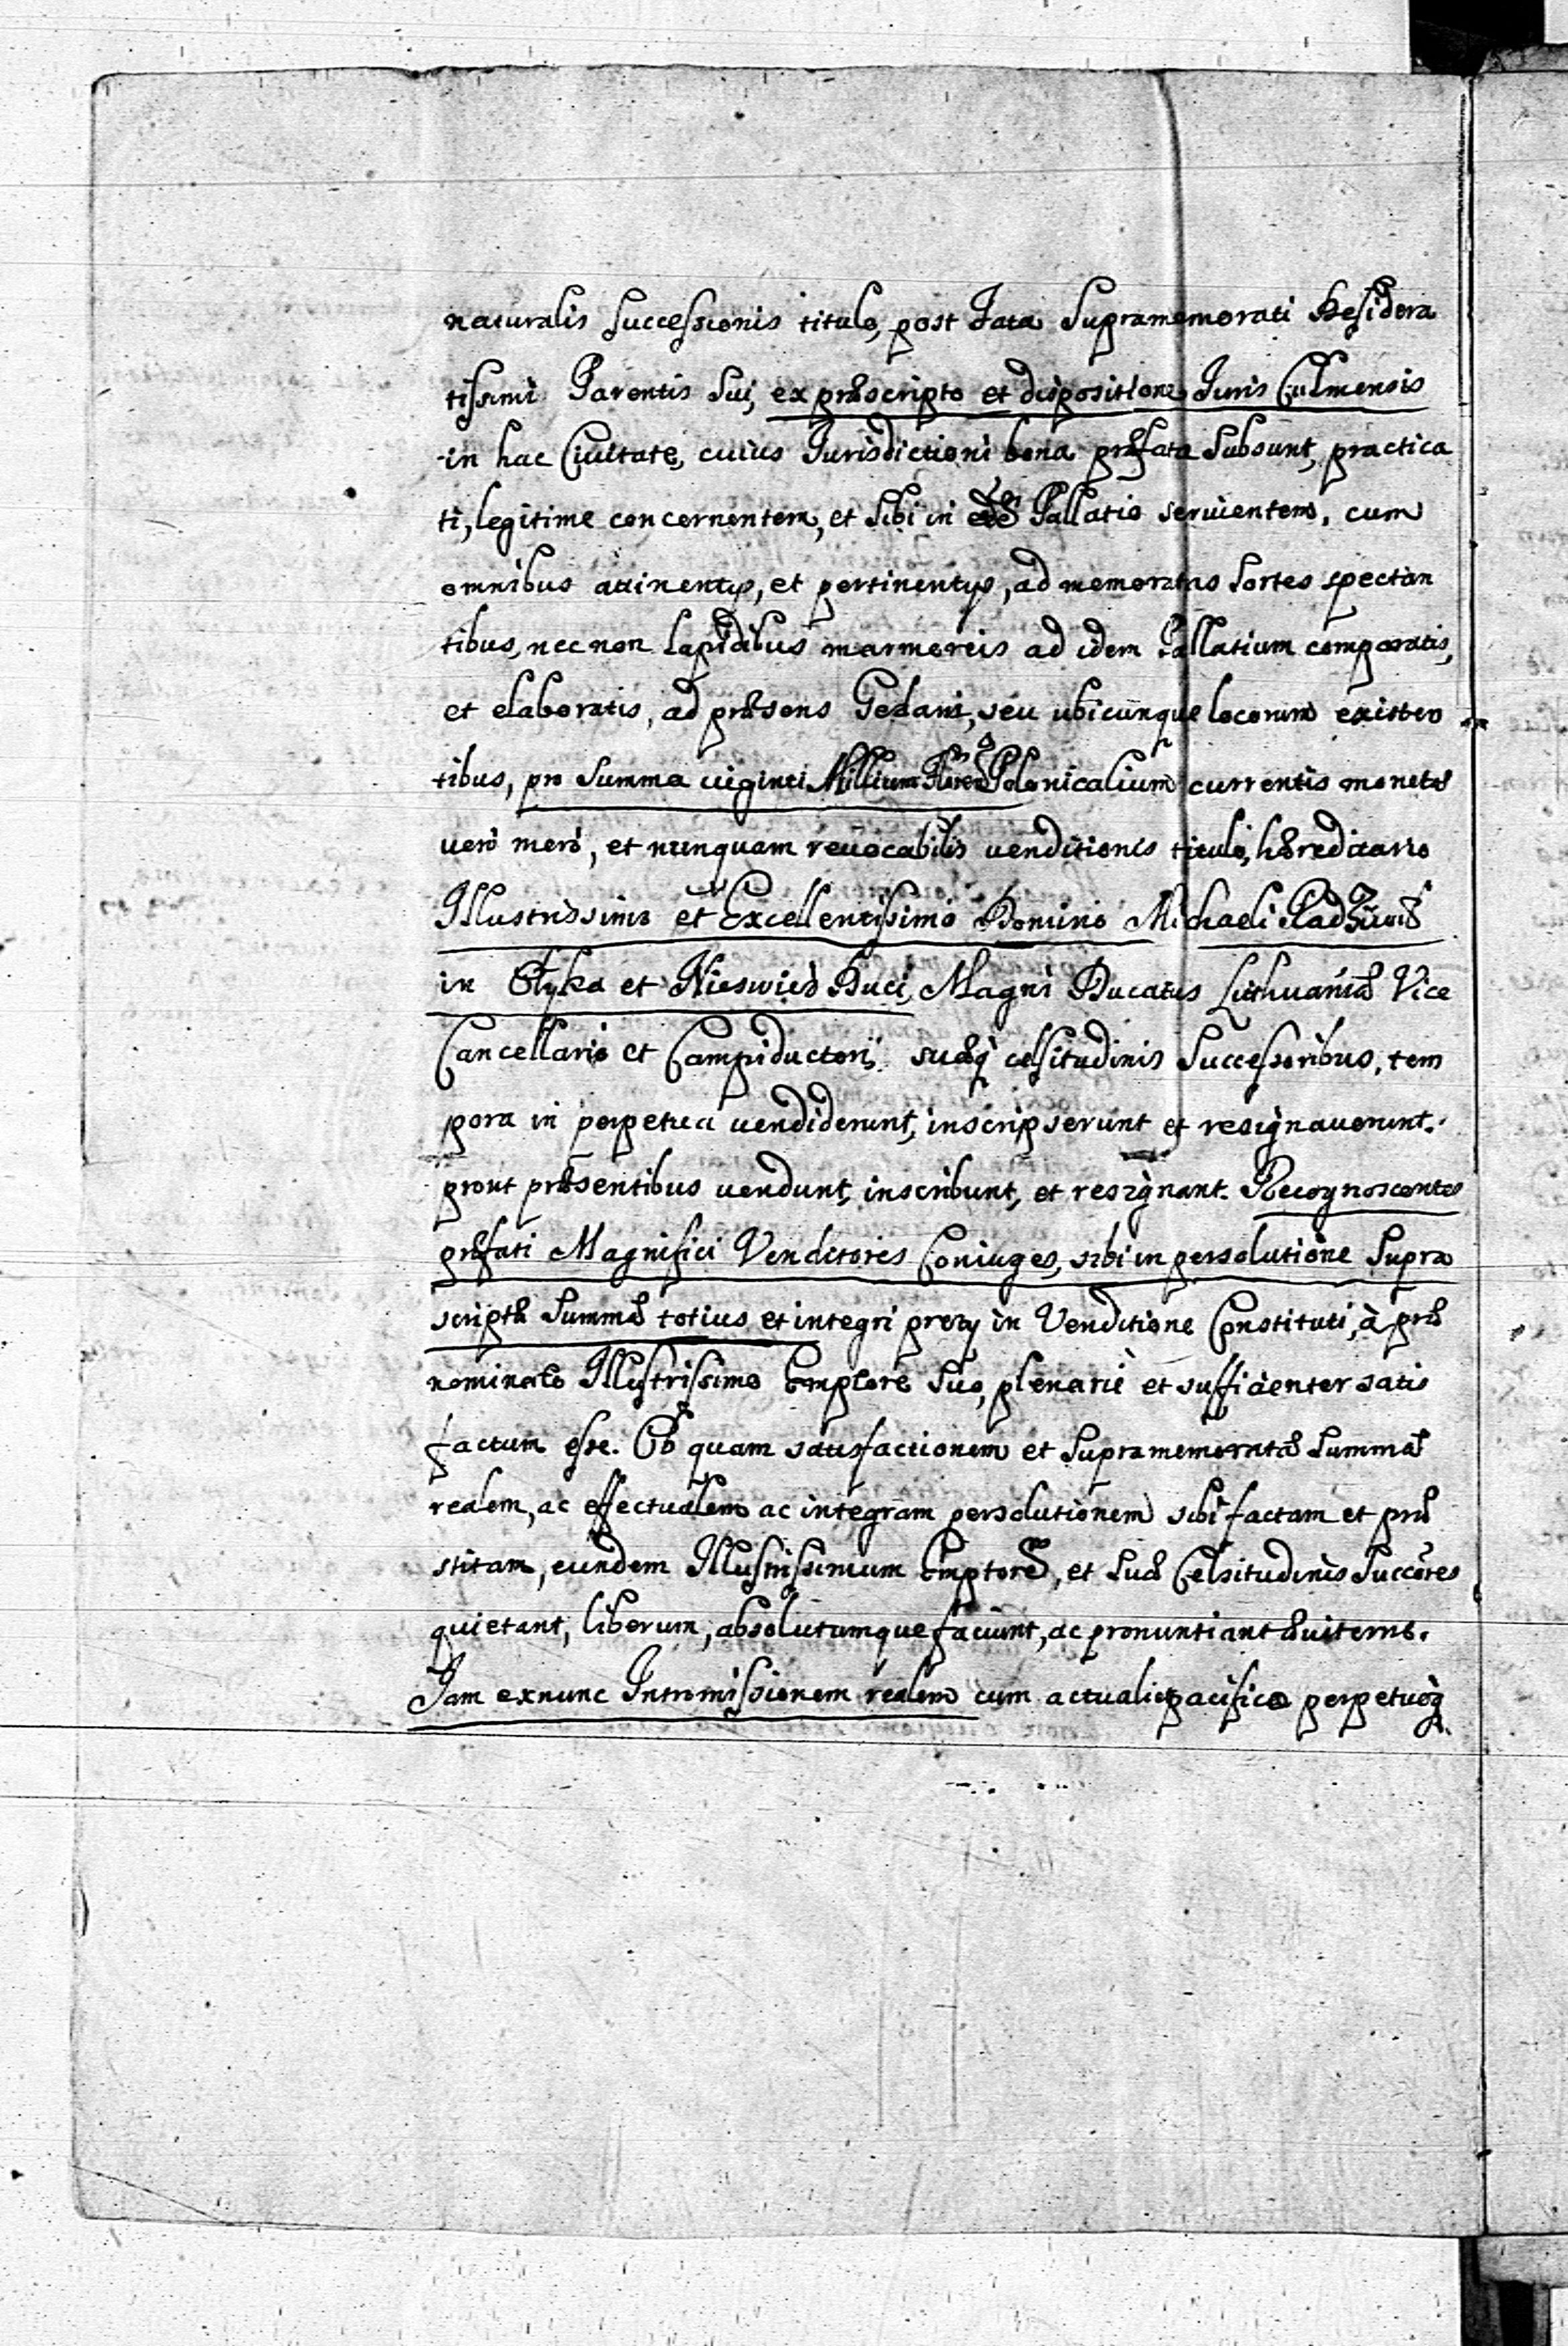 naturalis Successionis titulo, post Fata Supramemorati Desidera
tissimi Parentis Sui, ex præscripto et dispositione Iuris Culmensis
in hac Ciuitate, cuius Iurisdictioni bona præfata Subsunt, practica
ti, legitime concernentem, et Sibi in Pallatio seruientem, cum
omnibus attinentijs, et pertinentijs, ad memoratas Sortes spectan
tibus, nec non Lapidibus marmoreis ad idem Pallatium comparatis,
et elaboratis, ad præsens Gedani, seu ubicunque locorum existen
tibus, pro Summa uiginti Millium Polonicalium currentis monetæ
uero mero, et nunquam reuocabilis uenditionis titulo, hæreditario
Illustrissimo et Excellentissimo Domino Michaeli Radziuił
in Ołyka et Nieswież Duci, Magni Ducatus Lithuaniæ Vice
Cancellario et Campiductori, suæq celsitudinis Successoribus, tem
pora in perpetua uendiderunt, inscripserunt et resignauerunt.
prout præsentibus uendunt, inscribunt, et resignant. Recognoscentes
præfati Magnifici Venditores Coniuges, sibi in persolutione Supra
scriptæ Summæ totius et integri pretij in Venditione Constituti, à præ
nominato Illustrissimo Emptore Suo, plenariè et sufficienter satis
factum esse. Ob quam satisfactionem et Supramemoratæ Summæ
realem, ac effectualem ac integram persolutionem sibi factam et præ
stitam, eundem Illustrissimum Emptorē, et Suæ Celsitudinis Succōres
quietant, liberum, absolutumque faciunt, ac pronuntiant æuiterne.
Iam exnunc Intromissionem realem cum actuali pacifica perpetuaq